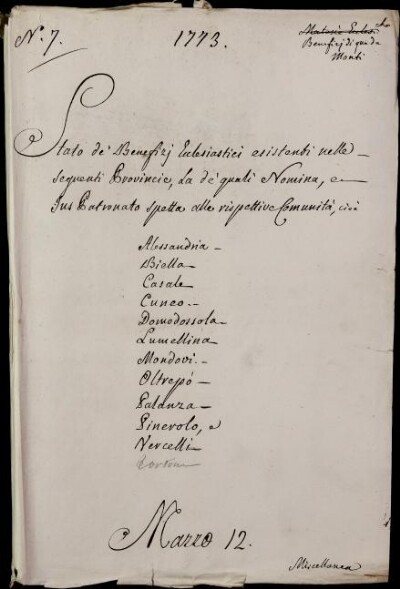 N.° 7.
1773.
Materie Eccles.che
Benefizj di quà da
Monti
Stato de' Benefizj Eclesiastici esistenti nelle
seguenti Provincie, La de' quali Nomina, e
Jus Patronato spetta alle rispettive Comunità, cioè
Alessandria
Biella
Casale
Cuneo
Domodossola
Lumellina
Mondovì
Oltrepò
Palanza
Pinerolo, e
Vercelli
Tortona
Mazzo 12.
Miscellanea